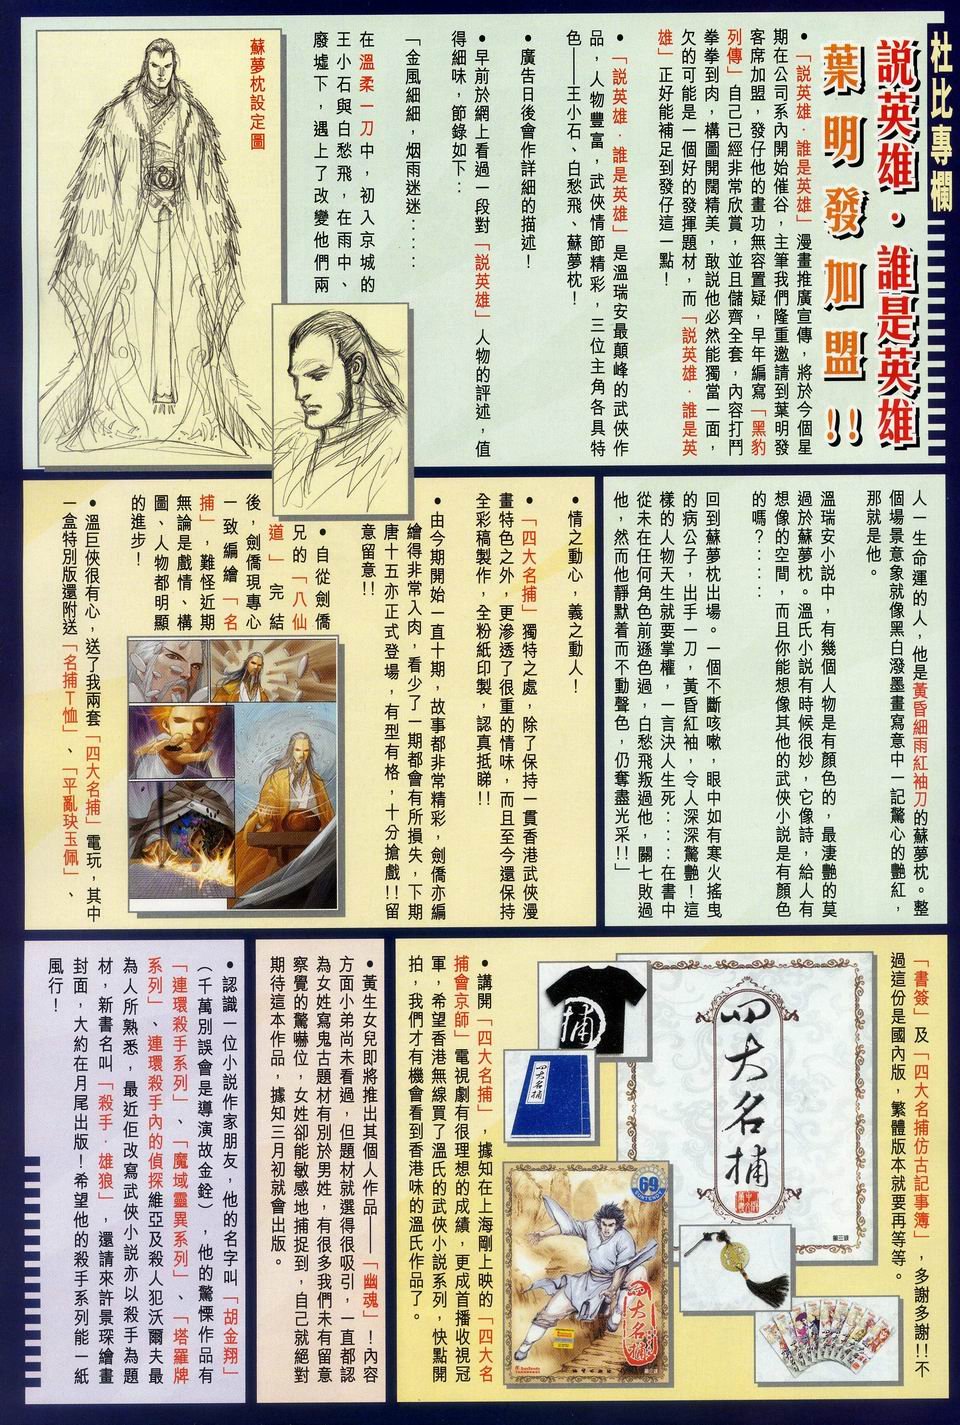 杜比專欄
說英雄．誰是英雄
葉明發加盟!!
•「說英雄．誰是英雄」漫畫推廣宣傳，將於今個星
期在公司系內開始催谷，主筆我們隆重邀請到葉明發
客席加盟，發仔他的畫功無容置疑，早年編寫「黑豹
列傳」自己已經非常欣賞，並且儲齊全套，內容打鬥
拳拳到肉，構圖開闊精美，敢說他必然能獨當一面，
欠的可能是一個好的發揮題材，而「說英雄．誰是英
雄」正好能補足到發仔這一點！
•「說英雄．誰是英雄」是溫瑞安最顛峰的武俠作
品，人物豐富，武俠情節精彩，三位主角各具特
色——王小石、白愁飛、蘇夢枕！
•廣告日後會作詳細的描述！
•早前於網上看過一段對「說英雄」人物的評述，值
得細味，節錄如下：
「金風細細，烟雨迷迷：：：
在溫柔一刀中，初入京城的
王小石與白愁飛，在雨中、
廢墟下，遇上了改變他們兩
蘇夢枕設定圖
人一生命運的人，他是黃昏細雨紅袖刀的蘇夢枕。整
個場景意象就像黑白潑墨畫寫意中一記驚心的艷紅，
那就是他。
溫瑞安小說中，有幾個人物是有顏色的，最淒艷的莫
過於蘇夢枕。溫氏小說有時候很妙，它像詩，給人有
想像的空間，而且你能想像其他的武俠小說是有顏色
的嗎？：：：
回到蘇夢枕出場。一個不斷咳嗽，眼中如有寒火搖曳
的病公子，出手一刀，黃昏紅袖，令人深深驚艷！這
樣的人物天生就要掌權，一言決人生死：：：在書中
從未在任何角色前遜色過，白愁飛叛過他，關七敗過
他，然而他靜默着而不動聲色，仍奪盡光采！！」
•情之動心，義之動人！
•「四大名捕」獨特之處，除了保持一貫香港武俠漫
畫特色之外，更滲透了很重的情味，而且至今還保持
全彩稿製作，全粉紙印製，認真抵睇!!
•由今期開始一直十期，故事都非常精彩，劍僑亦編
繪得非常入肉，看少了一期都會有所損失，下期
唐十五亦正式登場，有型有格，十分搶戲!!留
意留意!!
•自從劍僑
兄的「八仙
道」完結
後，劍僑現專心
一致編繪「名
捕」，難怪近期
無論是戲情、構
圖、人物都明顯
的進步！
•溫巨俠很有心，送了我兩套「四大名捕」電玩，其中
一盒特別版還附送「名捕T恤」、「平亂玦玉佩」、
「書簽」及「四大名捕仿古記事簿」，多謝多謝!!不
過這份是國內版，繁體版本就要再等等。
四大名捕
捕
四大名捕
69
四大名捕
•講開「四大名捕」，據知在上海剛上映的「四大名
捕會京師」電視劇有很理想的成績，更成首播收視冠
軍，希望香港無線買了溫氏的武俠小說系列，快點開
拍，我們才有機會看到香港味的溫氏作品了。
•黃生女兒即將推出其個人作品——「幽魂」！內容
方面小弟尚未看過，但題材就選得很吸引，一直都認
為女姓寫鬼古題材有別於男姓，有很多我們未有留意
察覺的驚嚇位，女姓卻能敏感地捕捉到，自己就絕對
期待這本作品，據知三月初就會出版。
•認識一位小說作家朋友，他的名字叫「胡金翔」
（千萬別誤會是導演故金銓），他的驚慄作品有
「連環殺手系列」、「魔域靈異系列」、「塔羅牌
系列」、連環殺手內的偵探維亞及殺人犯沃爾夫最
為人所熟悉，最近佢改寫武俠小說亦以殺手為題
材，新書名叫「殺手．雄狼」，還請來許景琛繪畫
封面，大約在月尾出版！希望他的殺手系列能一紙
風行！